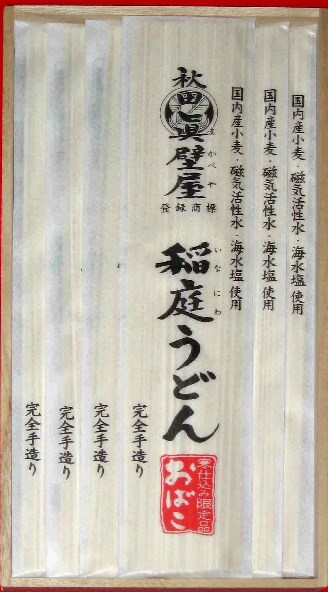 国内産小麦・磁気活性水・海水塩使用
国内産小麦・磁気活性水・海水塩使用
国内産小麦・磁気活性水・海水塩使用
秋田
眞壁屋
まかべや
登録商標
稲庭うどん
いなにわ
寒仕込み限定品
おばこ
完全手造り
完全手造り
完全手造り
完全手造り